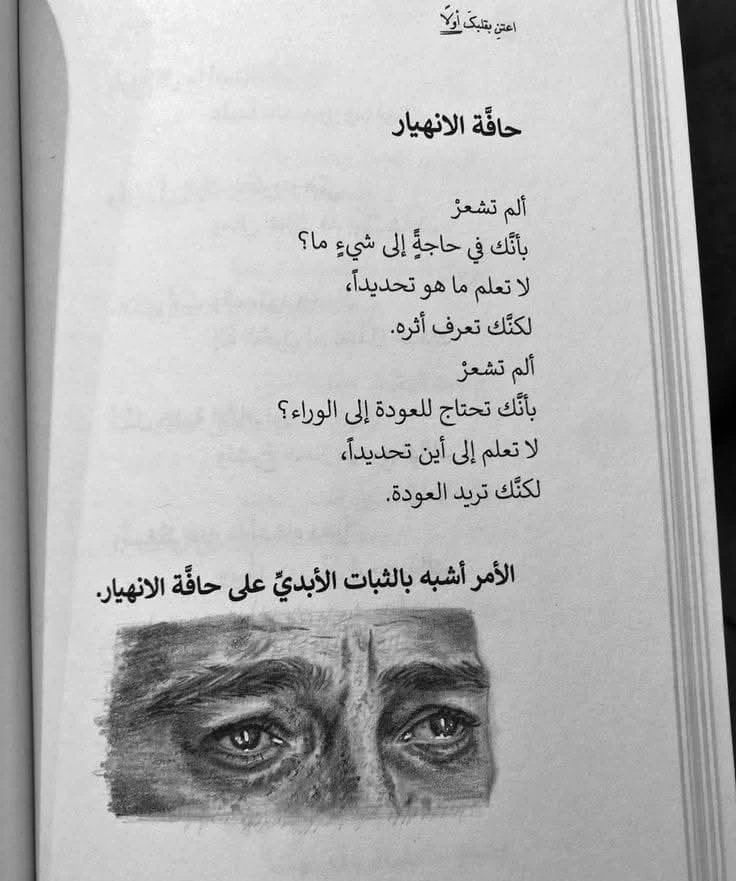 اعتنِ بقلبكَ أولًا
حافَّة الانهيار
ألم تشعرْ
بأنَّك في حاجةٍ إلى شيءٍ ما؟
لا تعلم ما هو تحديداً،
لكنَّك تعرف أثره.
ألم تشعرْ
بأنَّك تحتاج للعودة إلى الوراء؟
لا تعلم إلى أين تحديداً،
لكنَّك تريد العودة.
الأمر أشبه بالثبات الأبديِّ على حافَّة الانهيار.